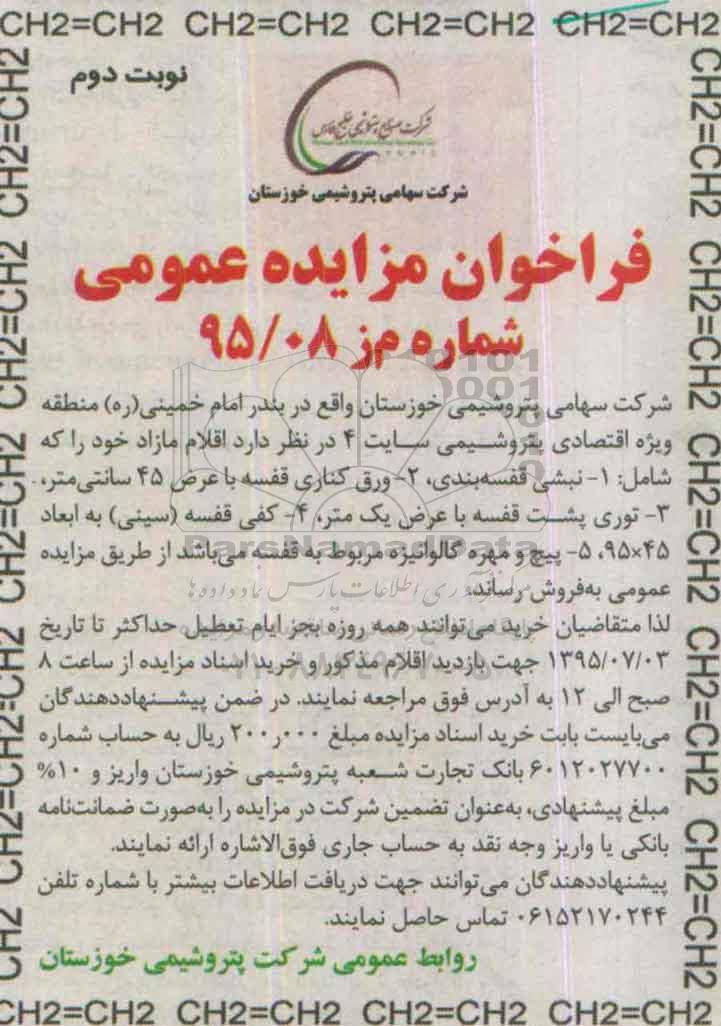 CH2=CH2 CH2=CH2 CH2=CH2 CH2=CH2
نوبت دوم
شرکت صنایع پتروشیمی خلیج فارس
شرکت سهامی پتروشیمی خوزستان
فراخوان مزایده عمومی
شماره م‌ز ۹۵/۰۸
شرکت سهامی پتروشیمی خوزستان واقع در بندر امام خمینی(ره) منطقه
ویژه اقتصادی پتروشیمی سایت ۴ در نظر دارد اقلام مازاد خود را که
شامل: ۱- نبشی قفسه‌بندی، ۲- ورق کناری قفسه با عرض ۴۵ سانتی‌متر،
۳- توری پشت قفسه با عرض یک متر، ۴- کفی قفسه (سینی) به ابعاد
۹۵×۴۵، ۵- پیچ و مهره گالوانیزه مربوط به قفسه می‌باشد از طریق مزایده
عمومی به‌فروش رساند.
لذا متقاضیان خرید می‌توانند همه روزه بجز ایام تعطیل حداکثر تا تاریخ
۱۳۹۵/۰۷/۰۳ جهت بازدید اقلام مذکور و خرید اسناد مزایده از ساعت ۸
صبح الی ۱۲ به آدرس فوق مراجعه نمایند. در ضمن پیشنهاددهندگان
می‌بایست بابت خرید اسناد مزایده مبلغ ۲۰۰٫۰۰۰ ریال به حساب شماره
۶۰۱۲۰۲۷۷۰۰ بانک تجارت شعبه پتروشیمی خوزستان واریز و ۱۰%
مبلغ پیشنهادی، به‌عنوان تضمین شرکت در مزایده را به‌صورت ضمانت‌نامه
بانکی یا واریز وجه نقد به حساب جاری فوق‌الاشاره ارائه نمایند.
پیشنهاددهندگان می‌توانند جهت دریافت اطلاعات بیشتر با شماره تلفن
۰۶۱۵۲۱۷۰۲۴۴ تماس حاصل نمایند.
روابط عمومی شرکت پتروشیمی خوزستان
CH2=CH2 CH2=CH2 CH2=CH2 CH2=CH2
CH2=CH2 CH2=CH2 CH2=CH2 CH2=CH2 CH2=CH2
CH2=CH2 CH2=CH2 CH2=CH2 CH2=CH2 CH2=CH2
ParsNamadData